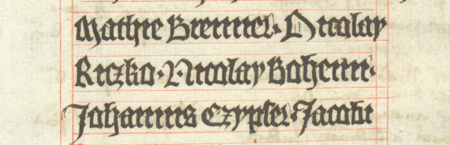 Mathie Brenner · Nicolay
Riczko · Nicolay Bohemi ·
Johannis Czypser · Jacobi